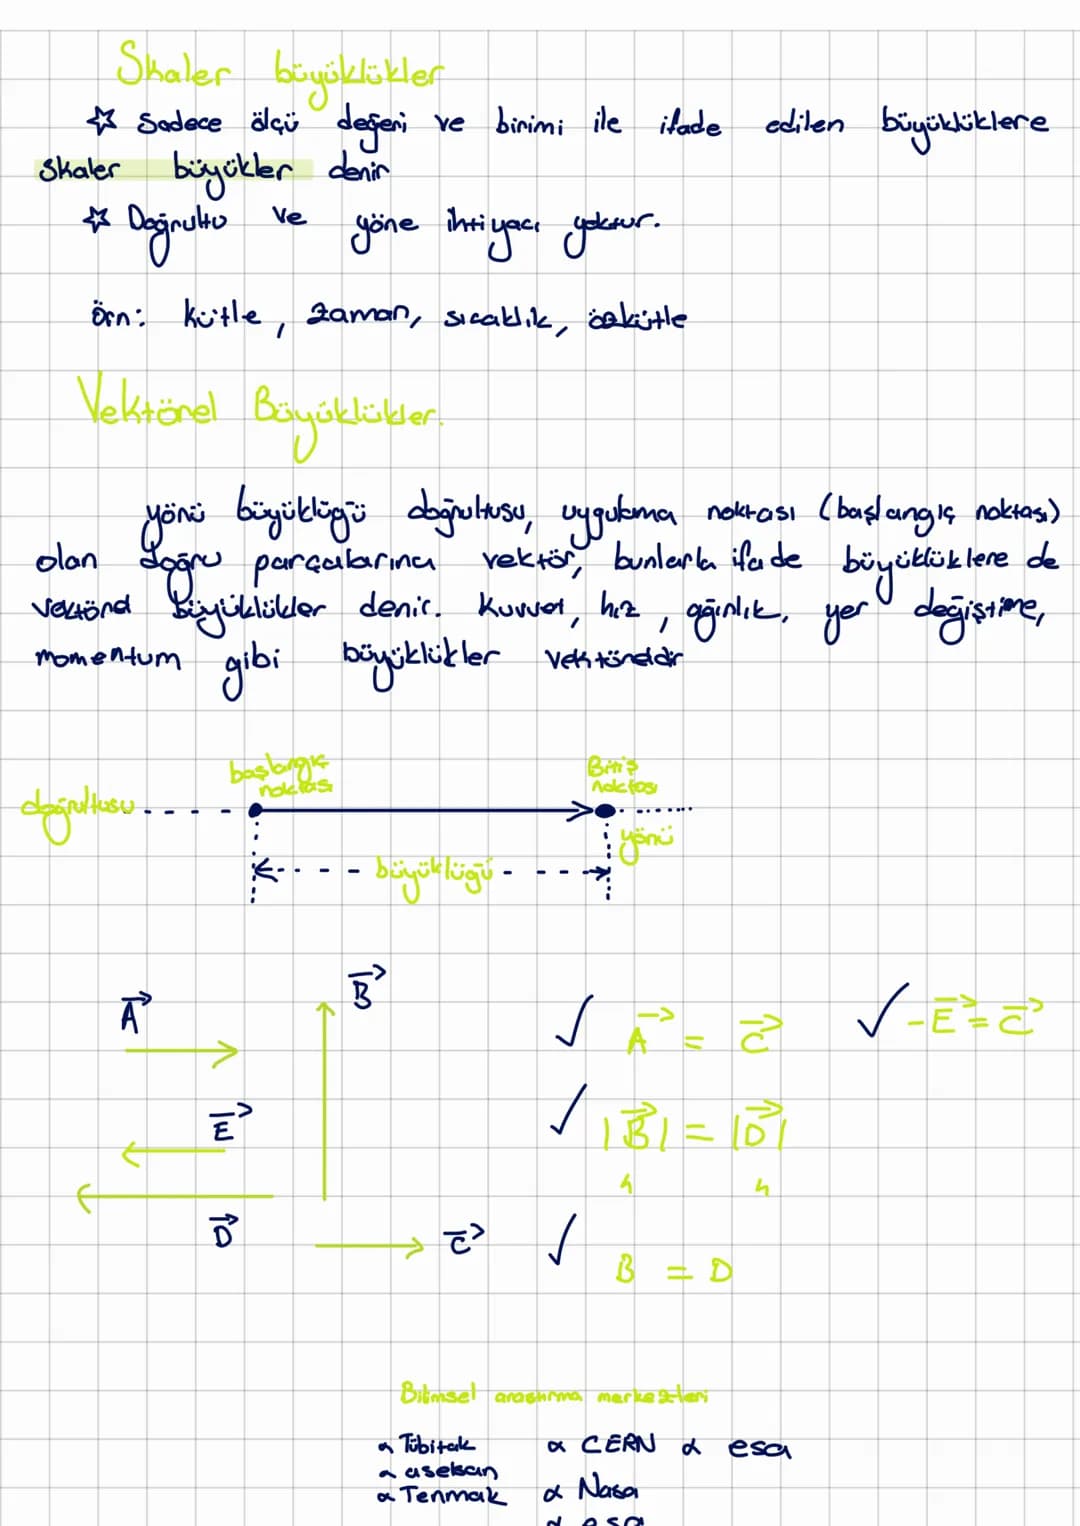 Skaler büyüklükler
☆ Sadece ölçü değeri ve birimi ile ifade edilen büyüklüklere
skaler büyükler denir
☆ Doğrultu ve yöne ihtiyacı yoktur.
Örn: kütle, zaman, sıcaklık, özkütle
Vektörel Büyüklükler.
yönü büyüklüğü doğrultusu, uygulama noktası (başlangıç noktası)
olan doğru parçalarına vektör, bunlarla ifade büyüklüklere de
vektörel büyüklükler denir. Kuvvet, hız, ağırlık, yer değiştirme,
momentum gibi büyüklükler vektöreldir
başlangıç noktası
Bitiş noktası
doğrultusu
yönü
büyüklüğü
A→
B→
E→
D→
C→
✓ A→ = C→
✓ -E→ = C→
✓ |B→| = |D→|
4 4
✓ B = D
Bilimsel araştırma merkezleri
α Tübitak α CERN α esa
α aselsan
α Tenmak α Nasa
α esa